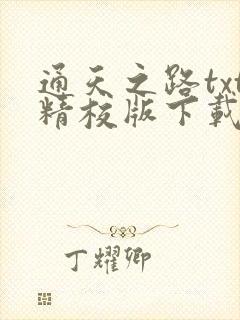 通天之路txt
精校版下載
丁耀卿